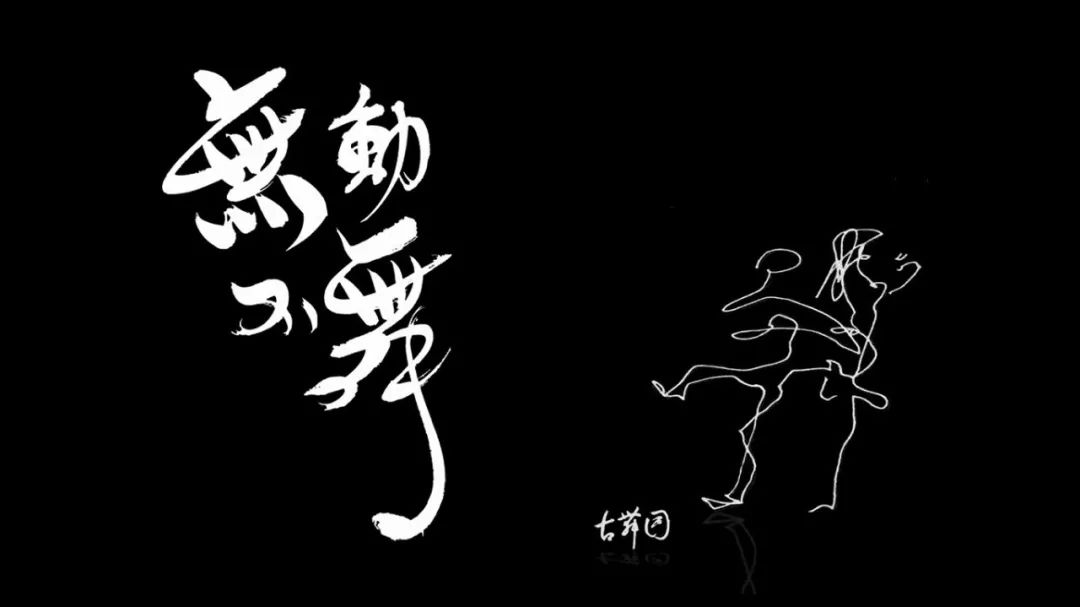 無動
不舞
古舞团